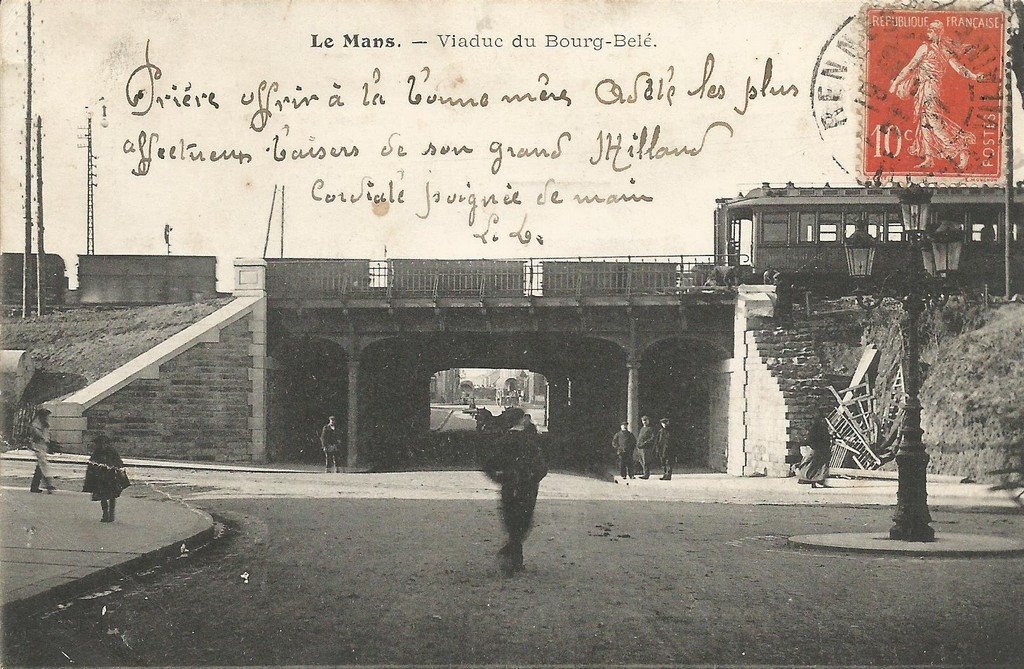 Le Mans. — Viaduc du Bourg-Belé.
Prière offrir à la bonne mère Adèle les plus
affectueux baisers de son grand Milland
Cordiale poignée de main
L. L.
RÉPUBLIQUE FRANÇAISE
10c
POSTES
RENN